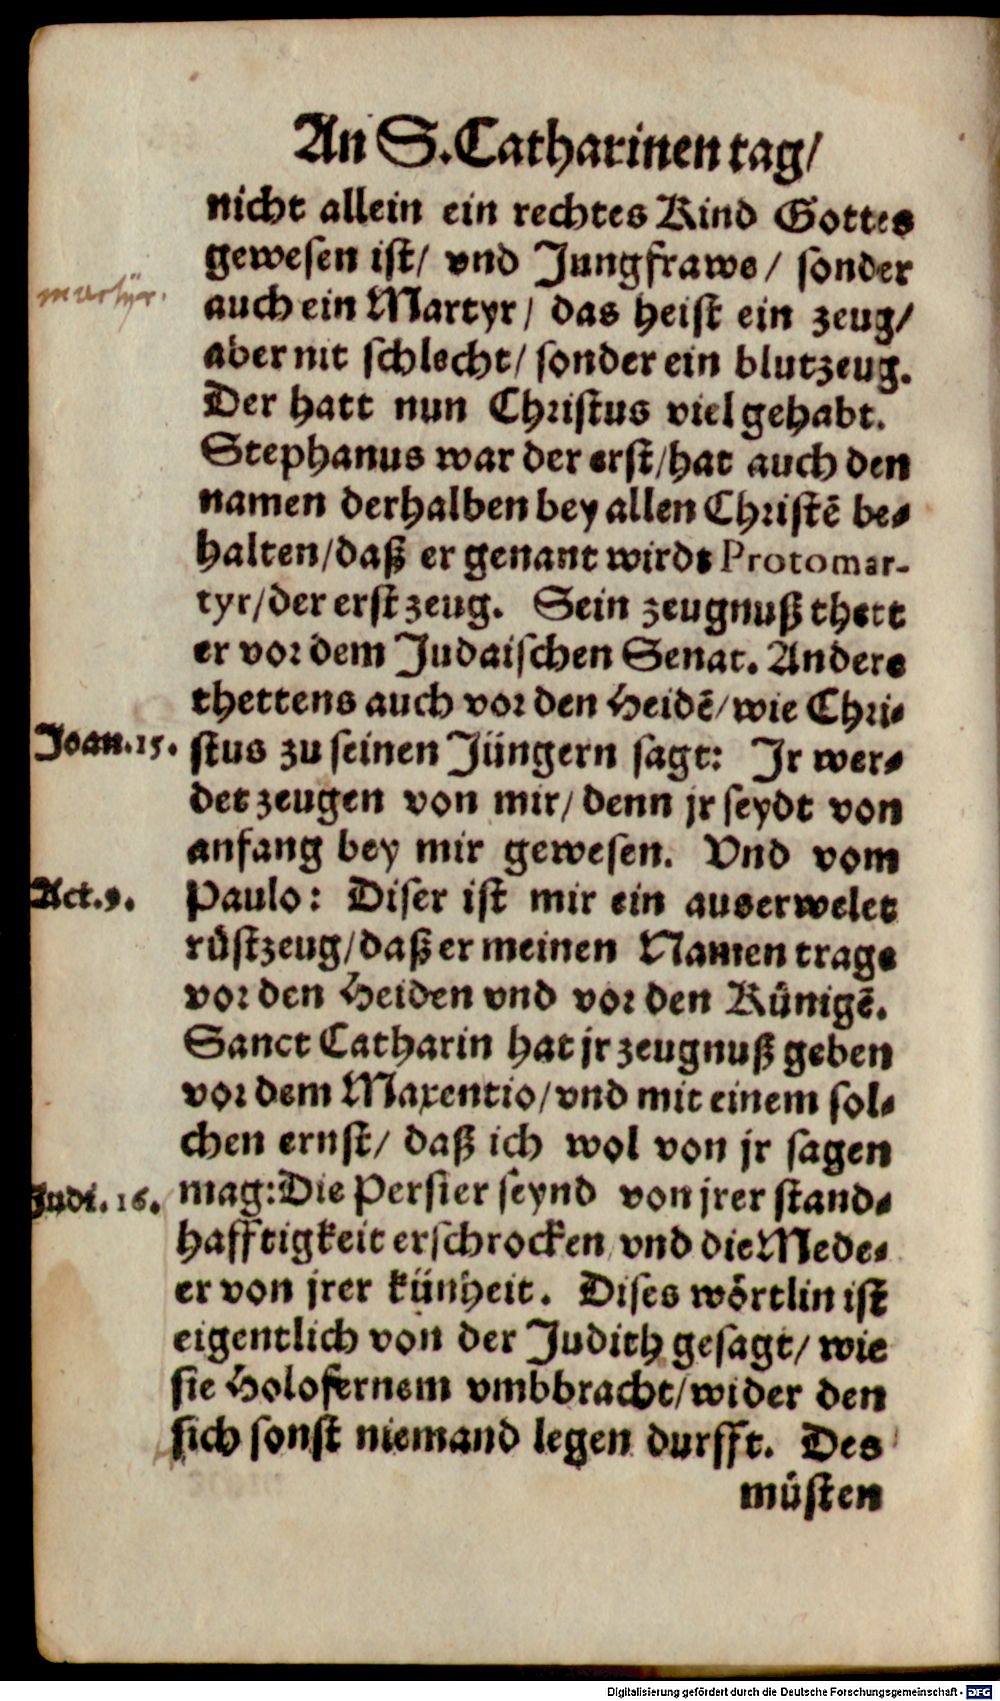 An S. Catharinen tag/
nicht allein ein rechtes Kind Gottes
gewesen ist/ vnd Jungfrawe/ sonder
martÿr.
auch ein Martyr/ das heist ein zeug/
aber nit schlecht/ sonder ein blutzeug.
Der hatt nun Christus viel gehabt.
Stephanus war der erst/hat auch den
namen derhalben bey allen Christē be-
halten/daß er genant wirdt Protomar-
tyr/der erst zeug. Sein zeugnuß thett
er vor dem Judaischen Senat. Andere
thettens auch vor den Heidē/wie Chri-
Joan.15.
stus zu seinen Jüngern sagt: Jr wer-
det zeugen von mir/denn jr seydt von
anfang bey mir gewesen. Vnd vom
Act.9.
Paulo: Diser ist mir ein auserwelet
rüstzeug/daß er meinen Namen trage
vor den Heiden vnd vor den Künigē.
Sanct Catharin hat jr zeugnuß geben
vor dem Maxentio/vnd mit einem sol-
chen ernst/ daß ich wol von jr sagen
Judi.16.
mag:Die Persier seynd von jrer stand-
hafftigkeit erschrocken vnd die Mede-
er von jrer künheit. Dises wörtlin ist
eigentlich von der Judith gesagt/ wie
sie Holofernem vmbbracht/wider den
sich sonst niemand legen durfft. Des
müsten
Digitalisierung gefördert durch die Deutsche Forschungsgemeinschaft - DFG